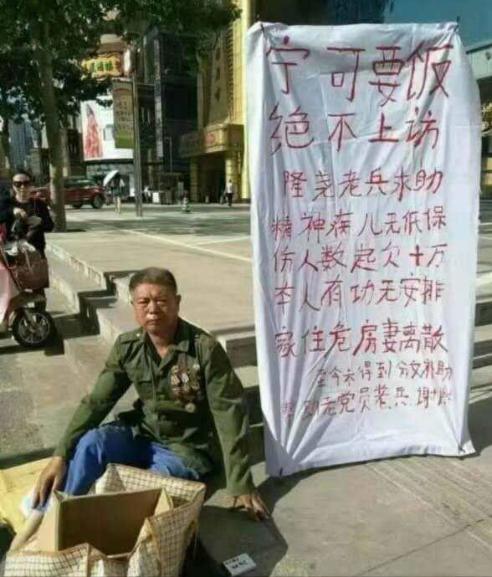 宁可要饭
绝不上访
隆尧老兵求助
精神病儿无低保
伤人数起欠十万
本人有功无安排
家住危房妻离散
至今未得到分文补助
老党员老兵 谢